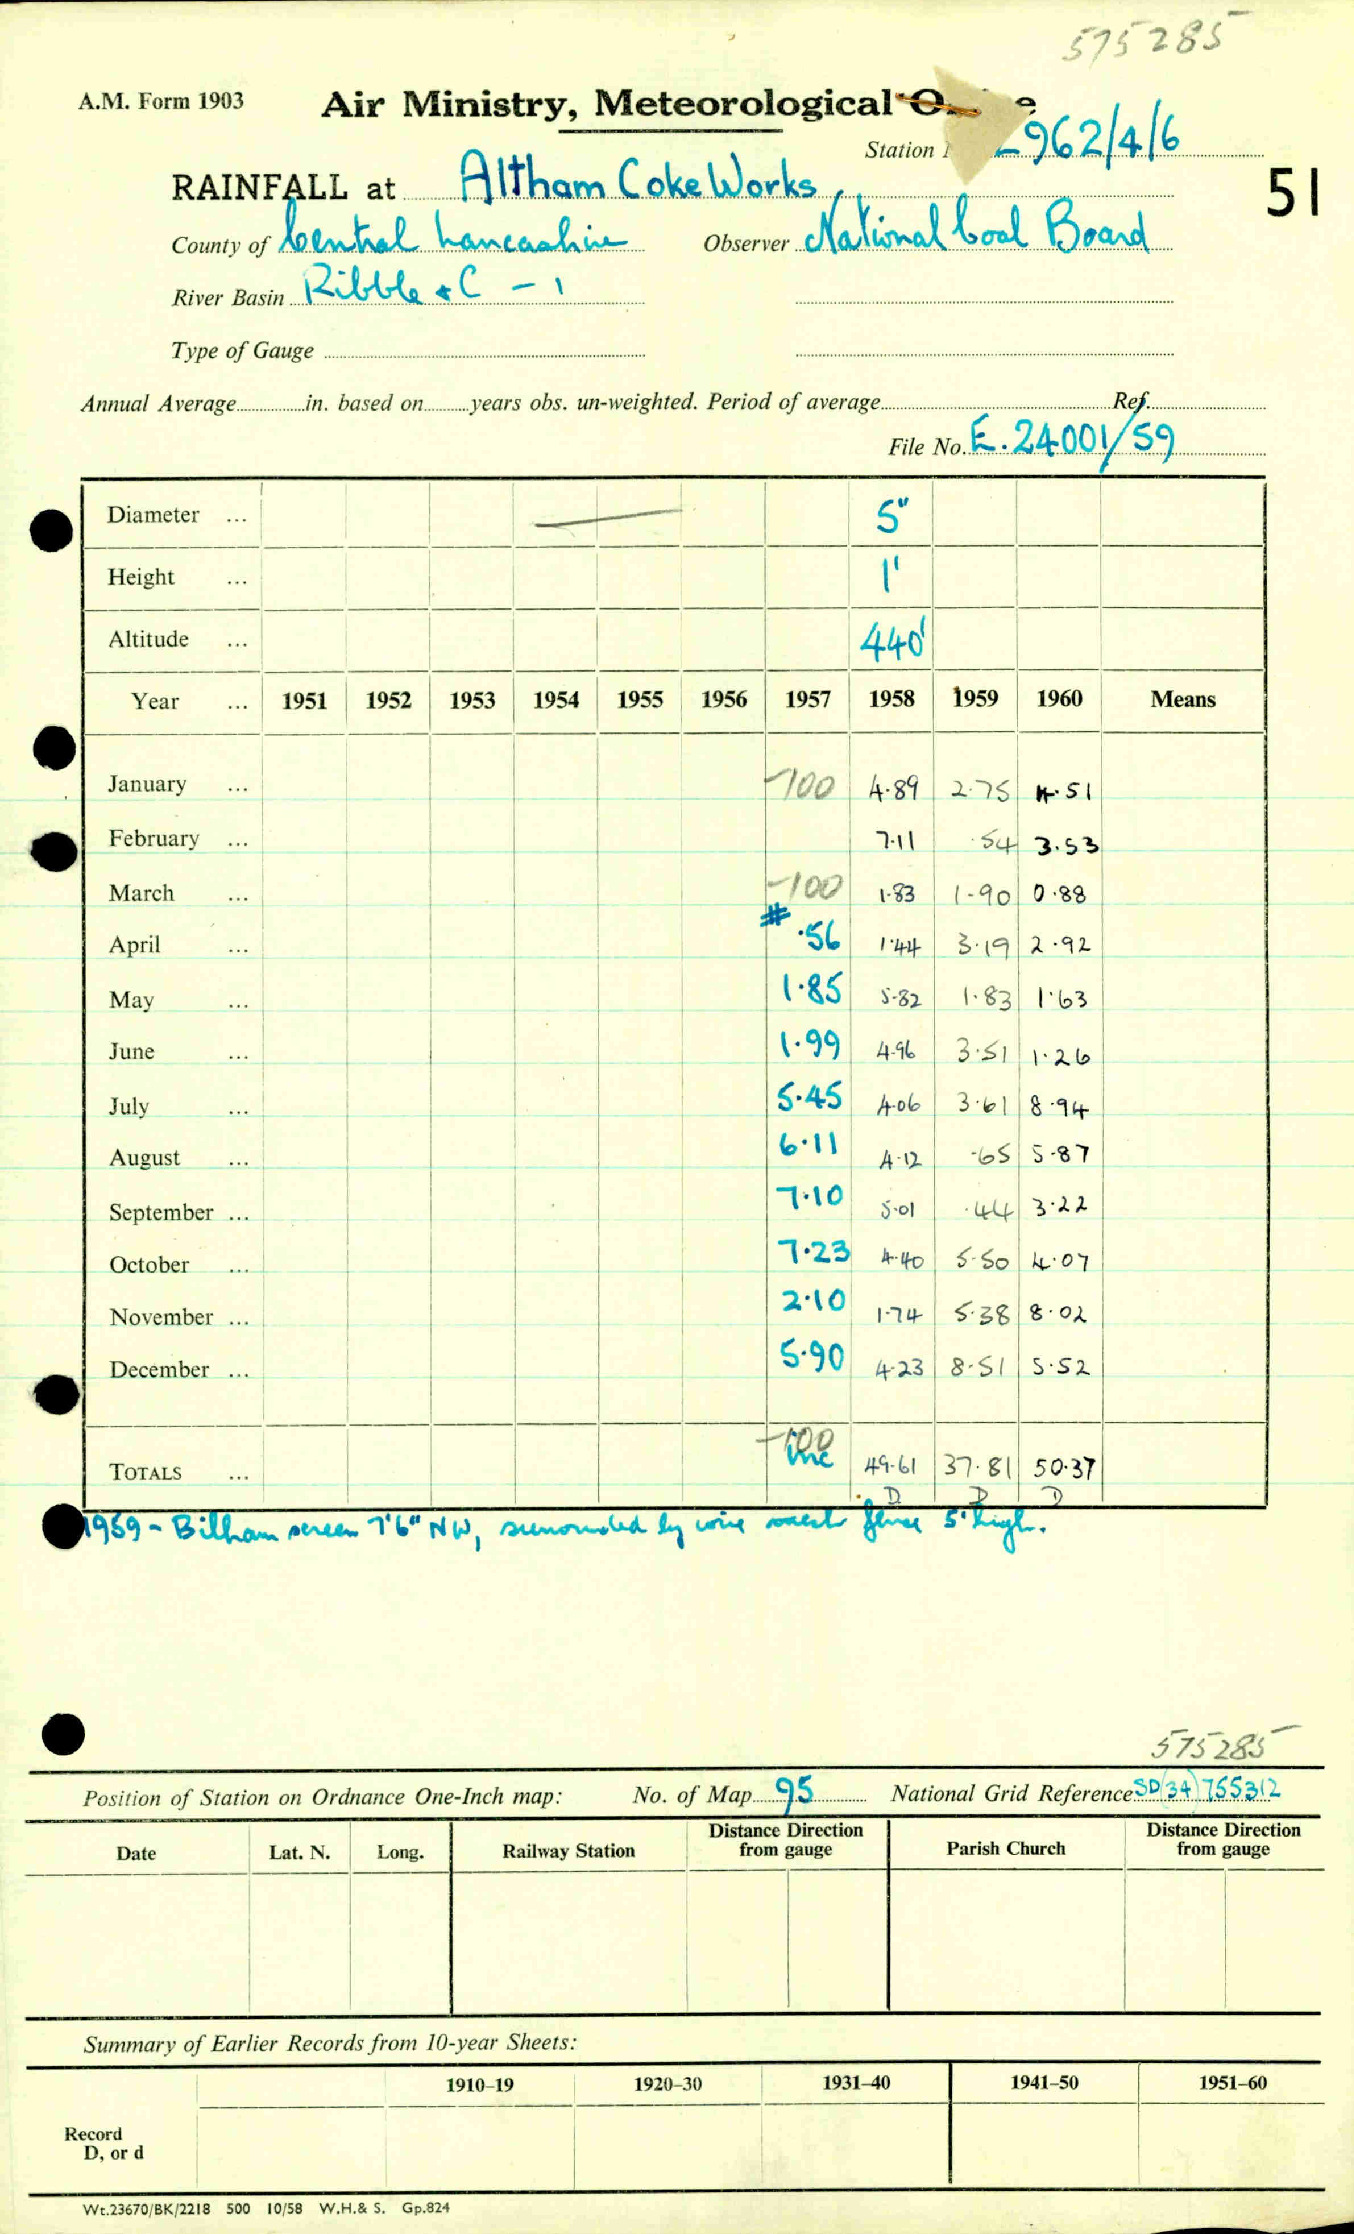 575285
A.M. Form 1903 Air Ministry, Meteorological O e
Station 962/4/6
RAINFALL at Altham Coke Works, 51
County of Central Lancashire Observer National Coal Board
River Basin Ribble + C - 1
Type of Gauge
Annual Average in. based on years obs. un-weighted. Period of average Ref.
File No. E.24001/59
Diameter ... 5"
Height ... 1'
Altitude ... 440'
Year ... 1951 1952 1953 1954 1955 1956 1957 1958 1959 1960 Means
January ... -100 4.89 2.75 4.51
February ... 7.11 .54 3.53
March ... -100 1.83 1.90 0.88
April ... # .56 1.44 3.19 2.92
May ... 1.85 5.82 1.83 1.63
June ... 1.99 4.96 3.51 1.26
July ... 5.45 4.06 3.61 8.94
August ... 6.11 4.12 .65 5.87
September ... 7.10 5.01 .44 3.22
October ... 7.23 4.40 5.50 4.07
November ... 2.10 1.74 5.38 8.02
December ... 5.90 4.23 8.51 5.52
-100
TOTALS ... inc 49.61 37.81 50.37
D D D
1959 - Bilham screen 7'6" NW, surrounded by wire mesh fence 5' high.
575285
Position of Station on Ordnance One-Inch map: No. of Map 95 National Grid Reference SD(34)755312
Date Lat. N. Long. Railway Station Distance Direction from gauge Parish Church Distance Direction from gauge
Summary of Earlier Records from 10-year Sheets:
1910-19 1920-30 1931-40 1941-50 1951-60
Record
D, or d
Wt.23670/BK/2218 500 10/58 W.H.& S. Gp.824